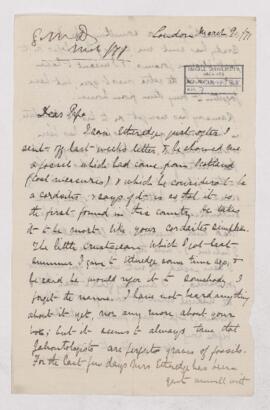 London March 20/71
Dear Pipe
I saw Etheridge just after I
sent off last week's letter, & he showed me
a fossil which had come from Scotland
(Coal measures) & which he considers to be
a cordaites, & says if it is so that it is
the first found in this country. He takes
it to be most like your cordaites simplex.
The little crustacean which I got last
summer I gave to Etheridge some time ago, &
he said he would refer it to somebody I
forget the name. I have not heard anything
about it yet, nor any more about your
but it seems to always take that
Palaeontologists are perfect graves of fossils.
For the last few days Mrs Etheridge has been
quite unwell with